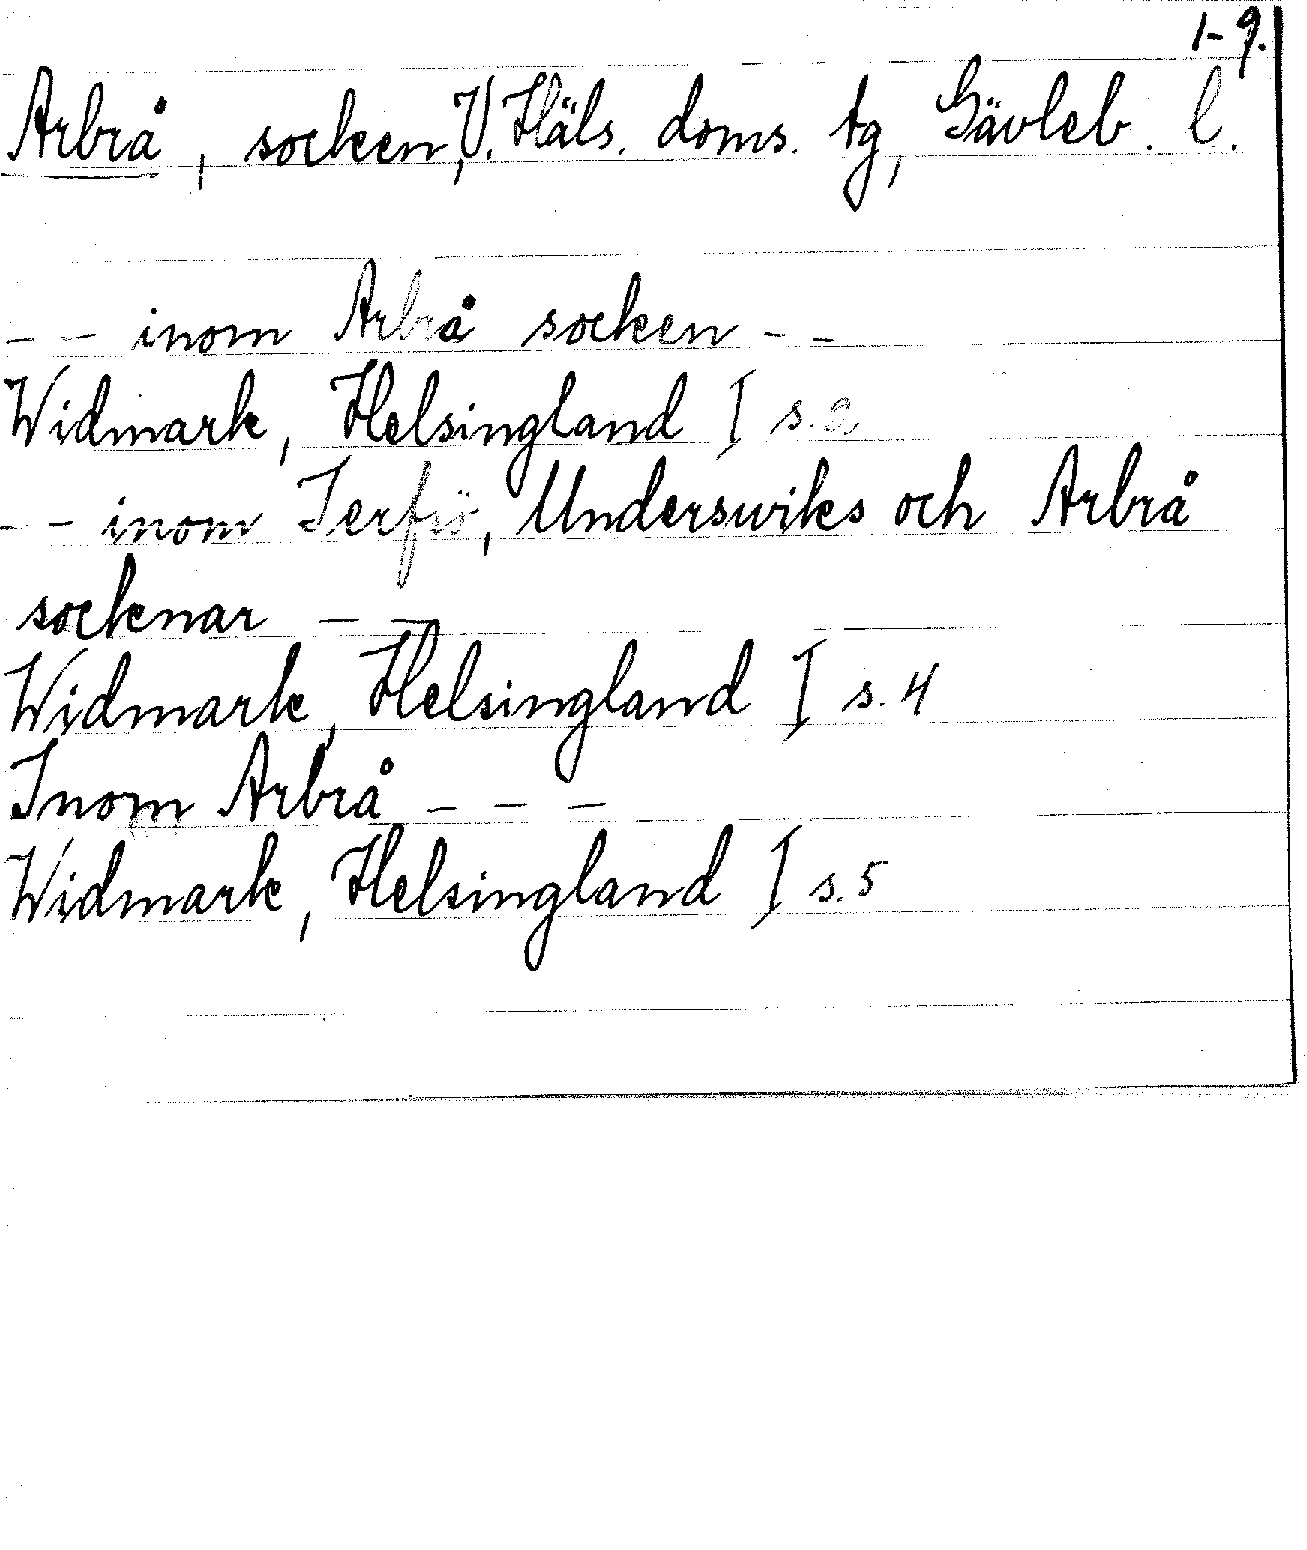 1-9.
Arbrå, socken, V. Häls. doms. tg, Gävleb. l.
- - inom Arbrå socken - -
Widmark, Helsingland I s. 2
- - inom Jerfsö, Underswiks och Arbrå
socknar - -
Widmark, Helsingland I s. 4
Inom Arbrå - - -
Widmark, Helsingland I s. 5